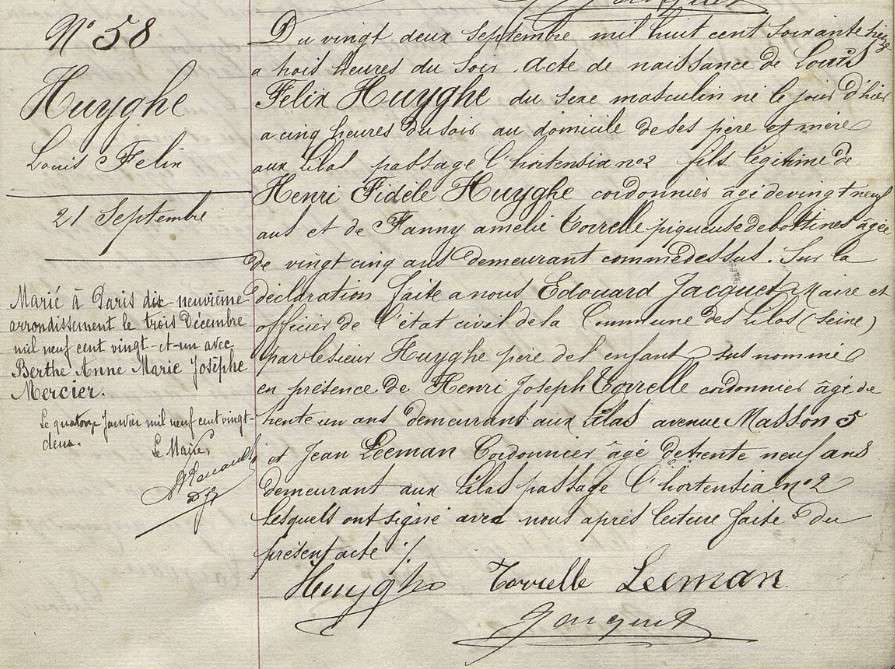 N° 58
Huyghe
Louis Felix
21 Septembre
Marié à Paris dix-neuvième
arrondissement le trois Décembre
mil neuf cent vingt-et-un avec
Berthe Anne Marie Josèphe
Mercier.
Le quatorze Janvier mil neuf cent vingt-
deux.
Le Maire,
Du vingt deux Septembre mil huit cent soixante treize
a trois heures du soir. Acte de naissance de Louis
Felix Huyghe du sexe masculin né le jour d'hier
a cinq heures du soir au domicile de ses père et mère
aux Lilas passage l'hortensia n° 2 fils légitime de
Henri Fidèle Huyghe cordonnier âgé de vingt neuf
ans et de Fanny amelie Torrelle piqueuse de bottines âgée
de vingt cinq ans demeurant comme dessus. Sur la
déclaration faite a nous Edouard Jacquet Maire et
officier de l'état civil de la Commune des Lilas (Seine)
par le sieur Huyghe père de l'enfant sus nommé
en présence de Henri Joseph Torrelle cordonnier âgé de
trente un ans demeurant aux Lilas avenue Masson 5
et Jean Leeman Cordonnier âgé de trente neuf ans
demeurant aux Lilas passage l'hortensia n° 2
Lesquels ont signé avec nous après lecture faite du
présent acte ./.
Huyghe Torrelle Leeman
Jacquet